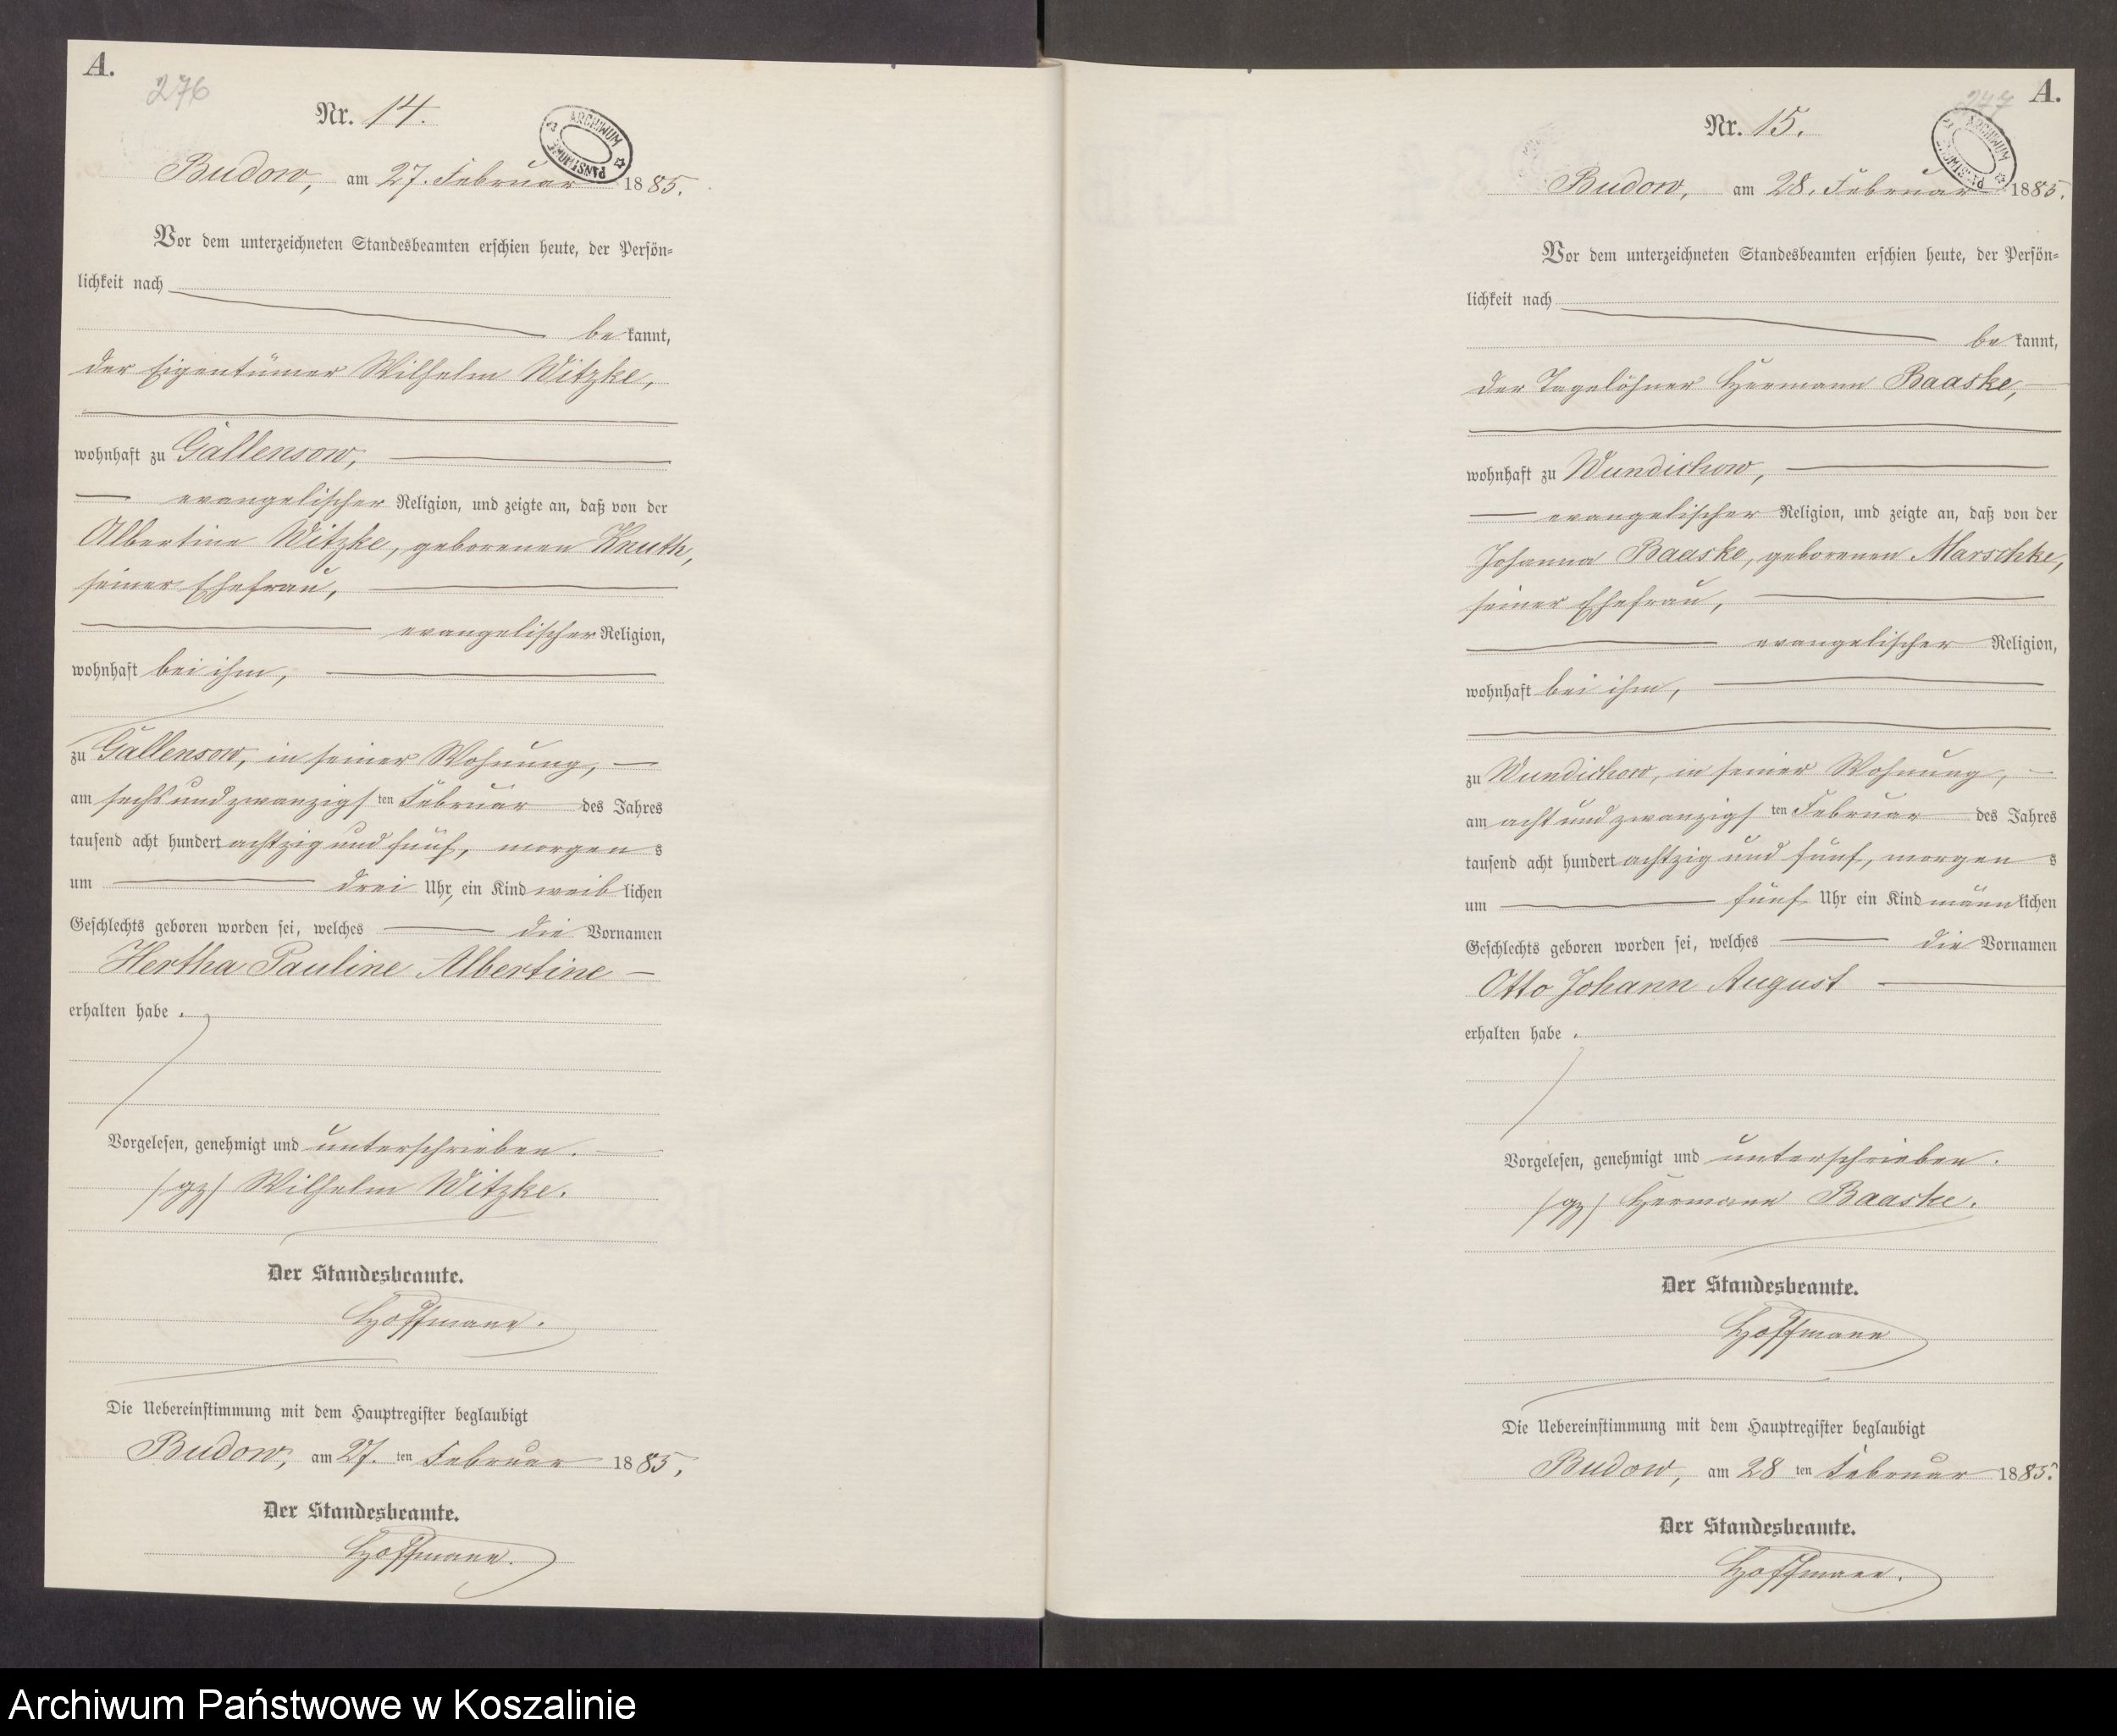 A.
276
Nr. 14.
ARCHIWUM PAŃSTWOWE
Budow, am 27. Februar 1885.
Vor dem unterzeichneten Standesbeamten erschien heute, der Persön-
lichkeit nach
be kannt,
der Eigentümer Wilhelm Witzke,
wohnhaft zu Gallensow,
evangelischer Religion, und zeigte an, daß von der
Albertine Witzke, geborenen Knuth,
seiner Ehefrau,
evangelischer Religion,
wohnhaft bei ihm,
zu Gallensow, in seiner Wohnung,
am sechs und zwanzigs ten Februar des Jahres
tausend acht hundert achtzig und fünf, morgen s
um drei Uhr, ein Kind weib lichen
Geschlechts geboren worden sei, welches die Vornamen
Hertha Pauline Albertine
erhalten habe.
Vorgelesen, genehmigt und unterschrieben.
/gz/ Wilhelm Witzke.
Der Standesbeamte.
Hoffmann.
Die Uebereinstimmung mit dem Hauptregister beglaubigt
Budow, am 27. ten Februar 1885.
Der Standesbeamte.
Hoffmann.
A.
277
Nr. 15.
ARCHIWUM PAŃSTWOWE
Budow, am 28. Februar 1885.
Vor dem unterzeichneten Standesbeamten erschien heute, der Persön-
lichkeit nach
be kannt,
der Tagelöhner Hermann Baaske,
wohnhaft zu Wundichow,
evangelischer Religion, und zeigte an, daß von der
Johanna Baaske, geborenen Marschke,
seiner Ehefrau,
evangelischer Religion,
wohnhaft bei ihm,
zu Wundichow, in seiner Wohnung,
am acht und zwanzigs ten Februar des Jahres
tausend acht hundert achtzig und fünf, morgen s
um fünf Uhr ein Kind männ lichen
Geschlechts geboren worden sei, welches die Vornamen
Otto Johann August
erhalten habe.
Vorgelesen, genehmigt und unterschrieben.
/gz/ Hermann Baaske.
Der Standesbeamte.
Hoffmann
Die Uebereinstimmung mit dem Hauptregister beglaubigt
Budow, am 28 ten Februar 1885.
Der Standesbeamte.
Hoffmann.
Archiwum Państwowe w Koszalinie